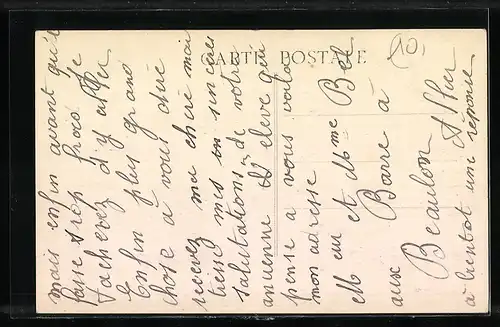 CARTE POSTALE
10
mais enfin avant qu'il
fasse trop froid Je
tacherez d'y aller
Enfin plus grand
chose a vous dire
recevez ma chère mai
mes sincères
salutations de votre
ancienne élève qui
pense a vous voila
mon adresse
M eur et Mme Bel
Barre à
aux Beaulon
Allier
a bientot une réponse